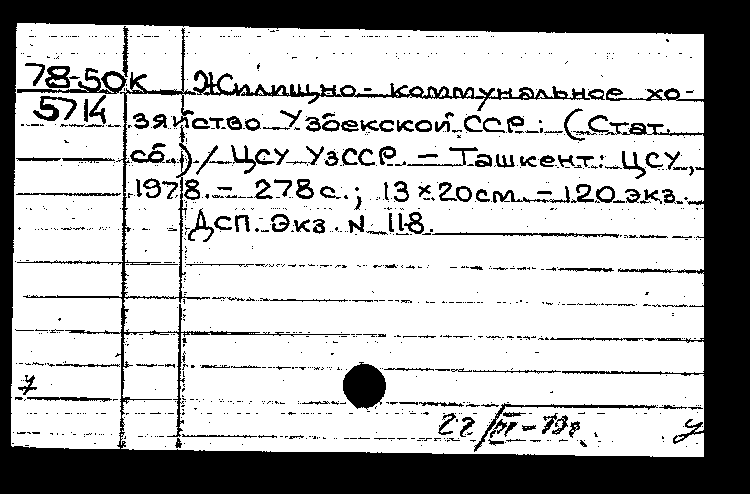 78-50К Жилищно-коммунальное хо-
5714 зяйство Узбекской ССР: (Стат.
сб.) / ЦСУ УзССР. - Ташкент: ЦСУ,
1978. - 278 с.; 13×20 см. - 120 экз.
ДСП. Экз. N 118.
22/III-79г.
у